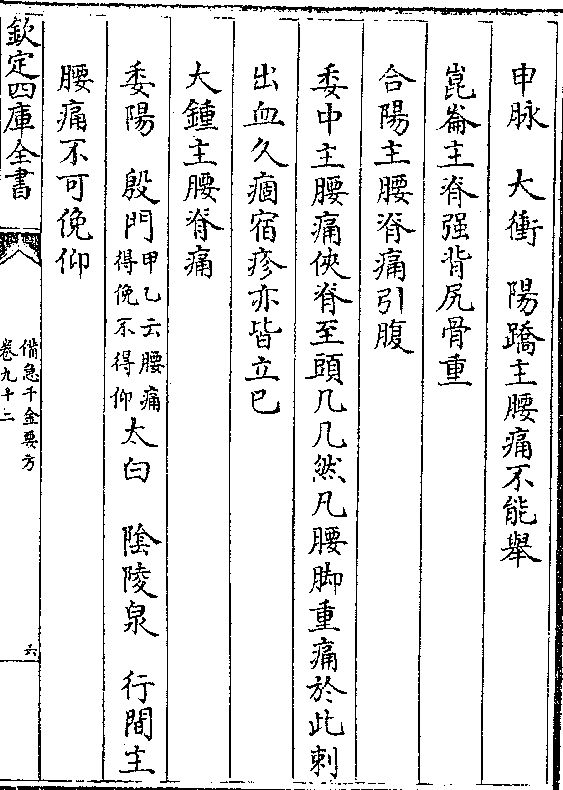 申脉　大衝　陽蹻主腰痛不能舉
崑崙主脊强背尻骨重
合陽主腰脊痛引腹
委中主腰痛俠脊至頭几几然凡腰脚重痛於此刺
出血久痼宿疹亦皆立已
大鍾主腰脊痛
委陽　殷門甲乙云腰痛得俛不得仰太白　陰陵泉　行間主
腰痛不可俛仰
欽定四庫全書
備急千金要方
卷九十二
六